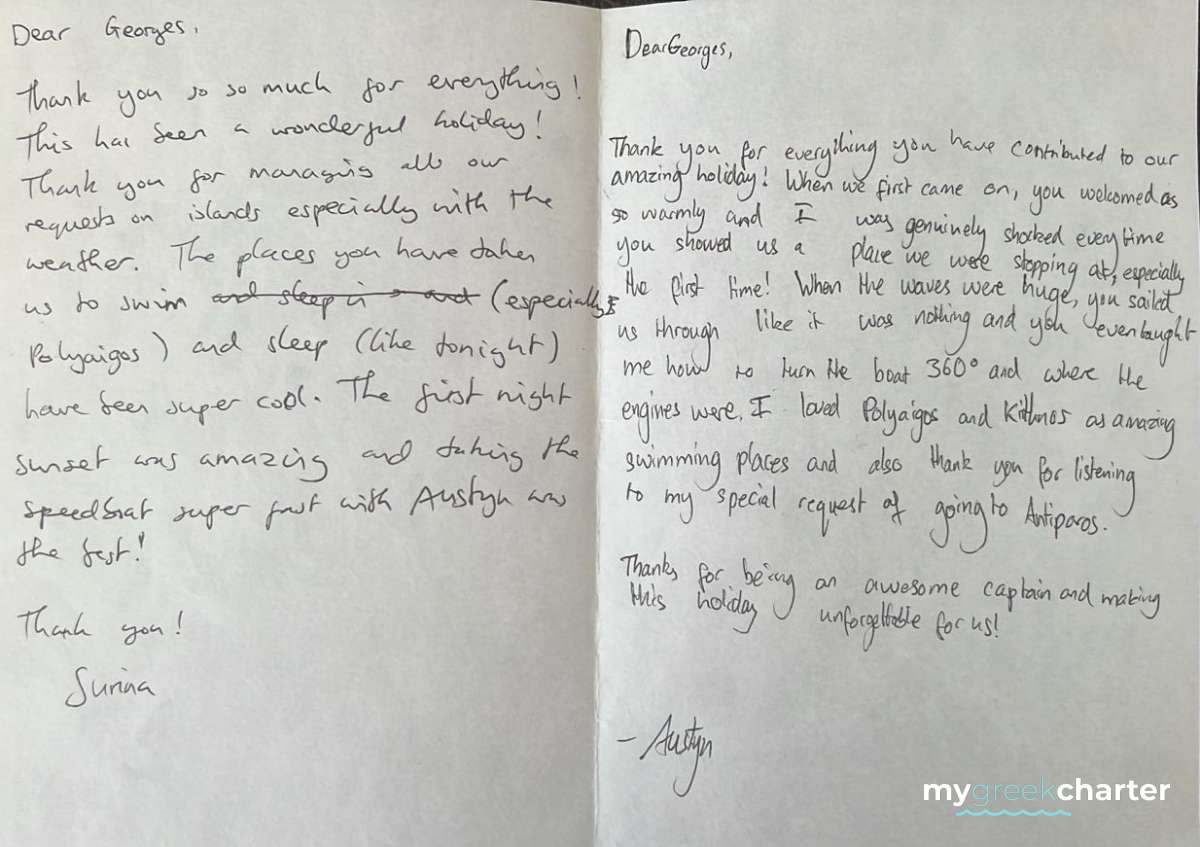 Dear Georges,
Thank you so so much for everything!
This has been a wonderful holiday!
Thank you for managing all our
requests on islands especially with the
weather. The places you have taken
us to swim and sleep in (especially
Polyaigos) and sleep (like tonight)
have been super cool. The first night
sunset was amazing and taking the
speedboat super fast with Austyn was
the best!
Thank you!
Surina
Dear Georges,
Thank you for everything you have contributed to our
amazing holiday! When we first came on, you welcomed us
so warmly and I was genuinely shocked everytime
you showed us a place we were stopping at, especially
the first time! When the waves were huge, you sailed
us through like it was nothing and you even taught
me how to turn the boat 360° and where the
engines were. I loved Polyaigos and Kithnos as amazing
swimming places and also thank you for listening
to my special request of going to Antiparos.
Thanks for being an awesome captain and making
this holiday unforgettable for us!
– Austyn
mygreekcharter